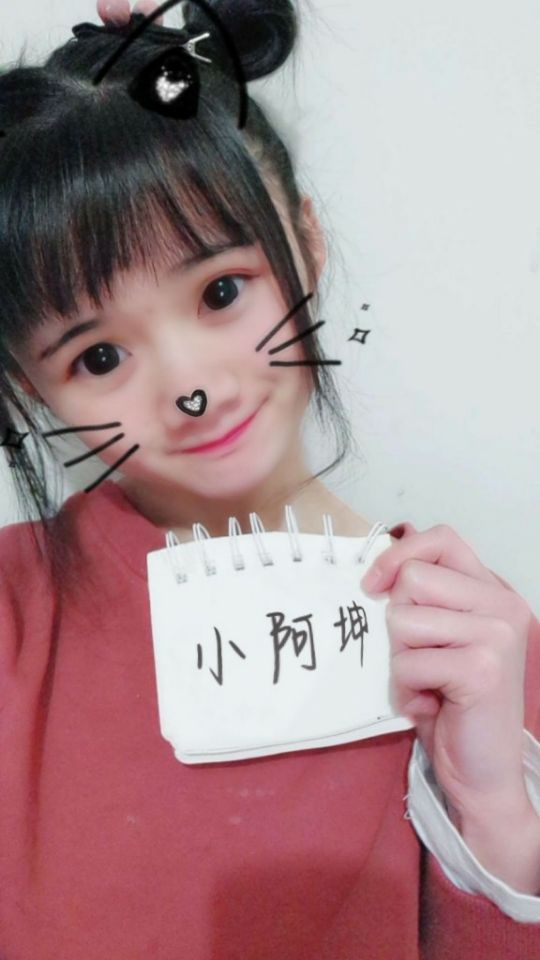 小阿坤